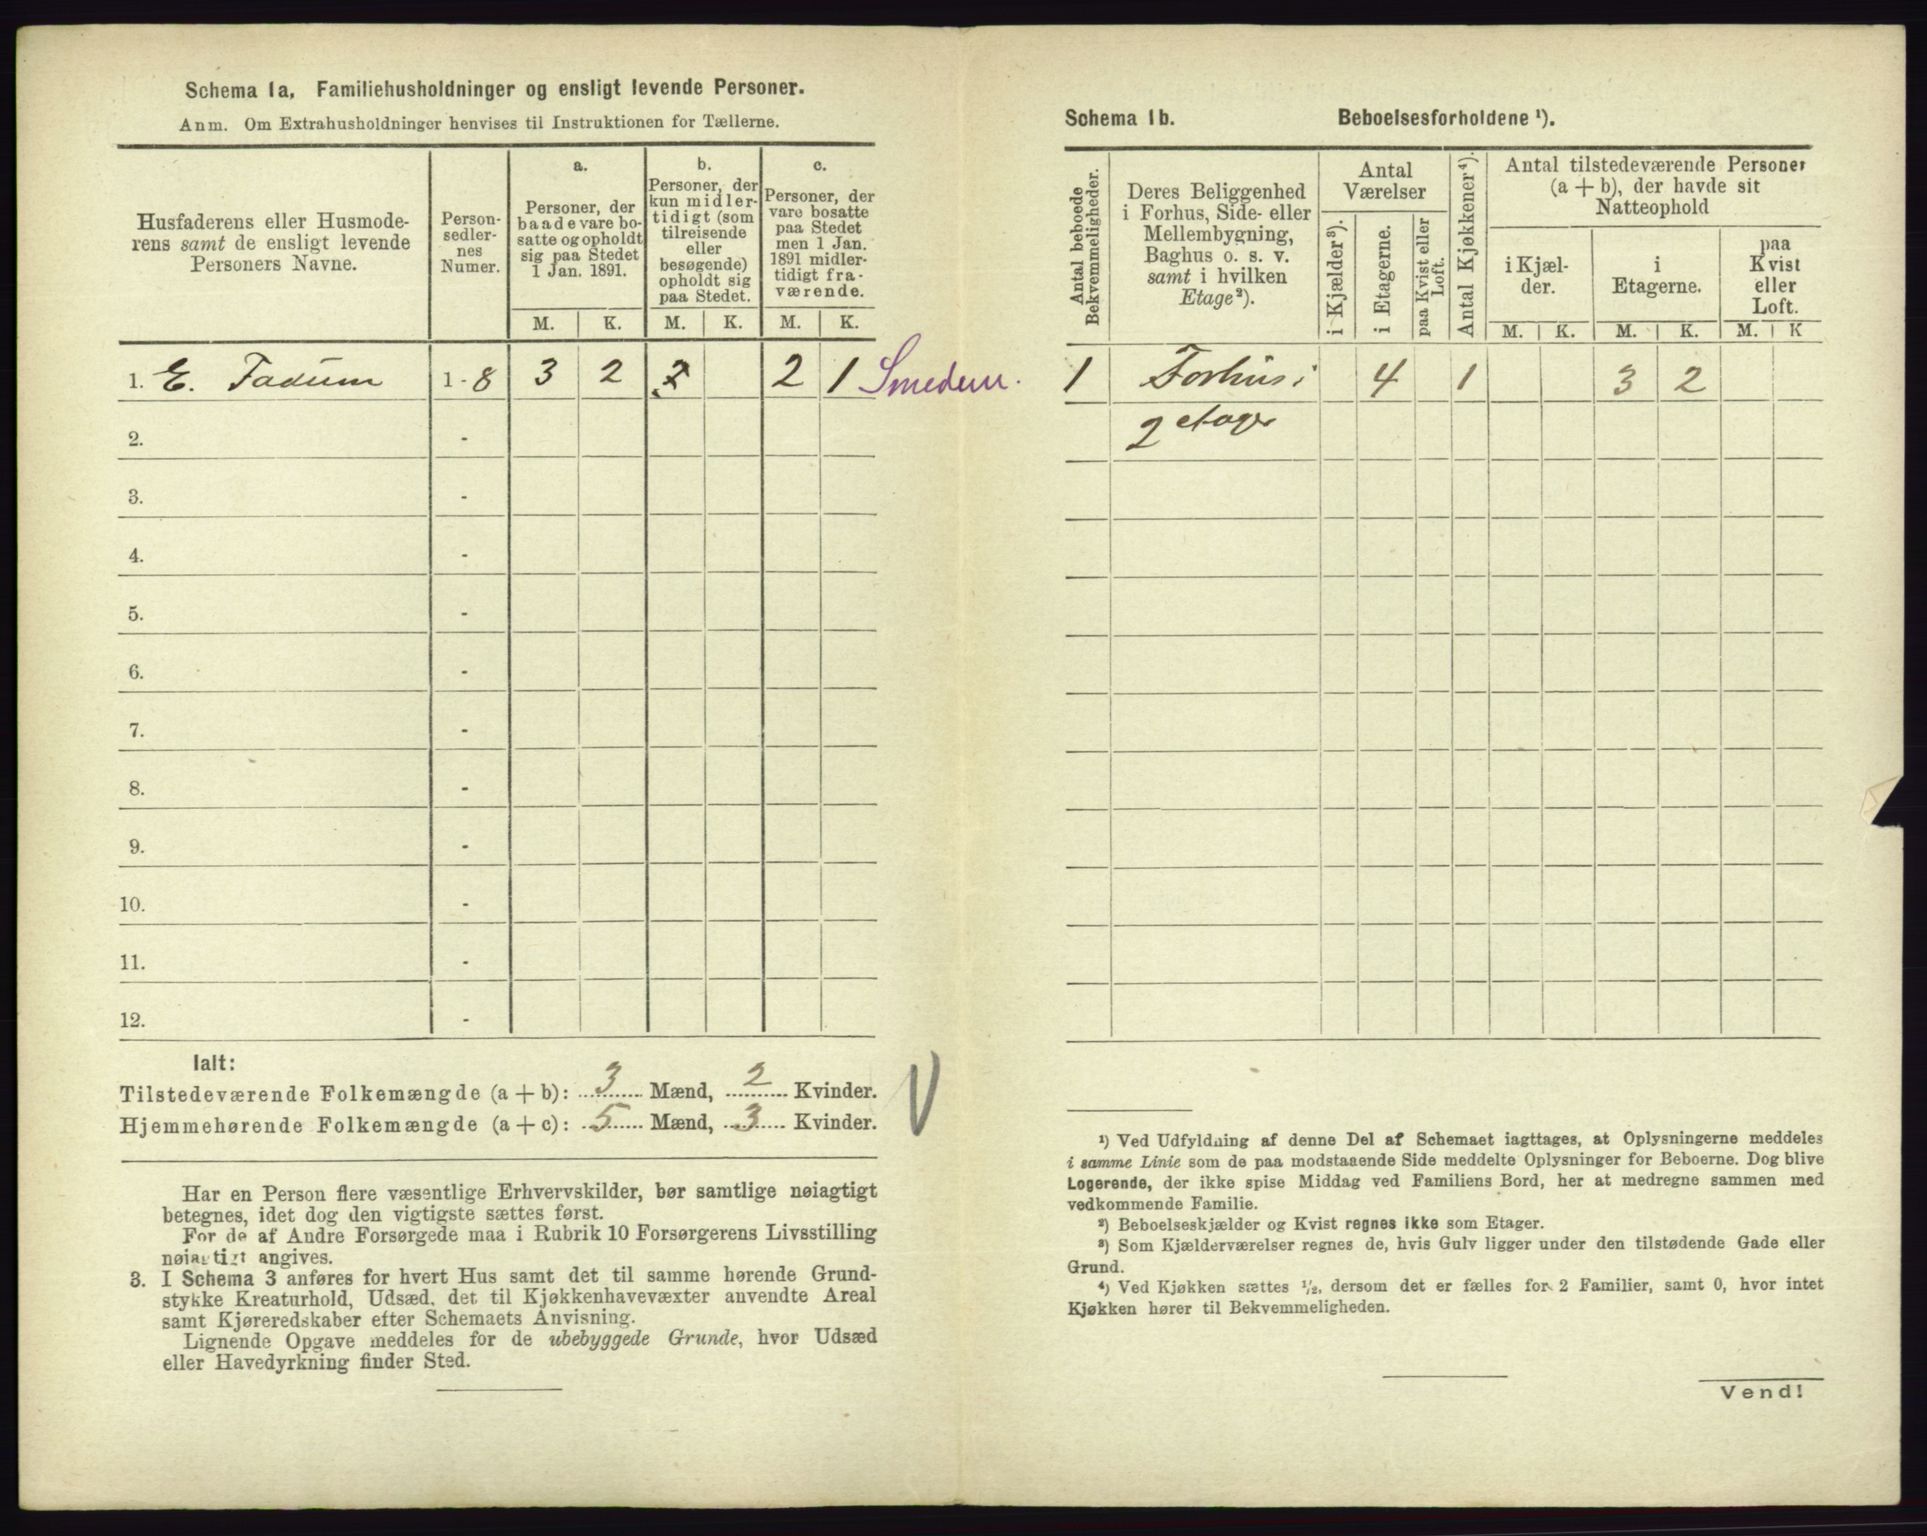 Schema 1a. Familiehusholdninger og ensligt levende Personer.
Anm. Om Extrahusholdninger henvises til Instruktionen for Tællerne.
Husfaderens eller Husmode-
rens samt de ensligt levende
Personers Navne.
Person-
sedler-
nes
Numer.
a.
Personer, der
baade vare bo-
satte og opholdt
sig paa Stedet
1 Jan. 1891.
b.
Personer, der
kun midler-
tidigt (som
tilreisende
eller
besøgende)
opholdt sig
paa Stedet.
c.
Personer, der
vare bosatte
paa Stedet
men 1 Jan.
1891 midler-
tidigt fra-
værende.
M. K. M. K. M. K.
1. E. Fadum 1 - 8 3 2 2 1 Smeden.
2. -
3. -
4. -
5. -
6. -
7. -
8. -
9. -
10. -
11. -
12. -
Ialt:
Tilstedeværende Folkemængde (a + b): 3 Mænd, 2 Kvinder.
Hjemmehørende Folkemængde (a + c): 5 Mænd, 3 Kvinder.
Har en Person flere væsentlige Erhvervskilder, bør samtlige nøiagtigt
betegnes, idet dog den vigtigste sættes først.
For de af Andre Forsørgede maa i Rubrik 10 Forsørgerens Livsstilling
nøiagtigt angives.
3. I Schema 3 anføres for hvert Hus samt det til samme hørende Grund-
stykke Kreaturhold, Udsæd, det til Kjøkkenhavevæxter anvendte Areal
samt Kjøreredskaber efter Schemaets Anvisning.
Lignende Opgave meddeles for de ubebyggede Grunde, hvor Udsæd
eller Havedyrkning finder Sted.
Schema 1b. Beboelsesforholdene ¹).
Antal beboede
Bekvemmeligheder.
Deres Beliggenhed
i Forhus, Side- eller
Mellembygning,
Baghus o. s. v.
samt i hvilken
Etage²).
Antal
Værelser
i Kjælder³).
i Etagerne.
paa Kvist eller
Loft.
Antal Kjøkkener⁴).
Antal tilstedeværende Personer
(a + b), der havde sit
Natteophold
i Kjæl-
der.
i
Etagerne.
paa
Kvist
eller
Loft.
M. K. M. K. M. K
1 Forhus i 4 1 3 2
2 etager
¹) Ved Udfyldning af denne Del af Schemaet iagttages, at Oplysningerne meddeles
i samme Linie som de paa modstaaende Side meddelte Oplysninger for Beboerne. Dog blive
Logerende, der ikke spise Middag ved Familiens Bord, her at medregne sammen med
vedkommende Familie.
²) Beboelseskjælder og Kvist regnes ikke som Etager.
³) Som Kjælderværelser regnes de, hvis Gulv ligger under den tilstødende Gade eller
Grund.
⁴) Ved Kjøkken sættes ½, dersom det er fælles for 2 Familier, samt 0, hvor intet
Kjøkken hører til Bekvemmeligheden.
Vend!